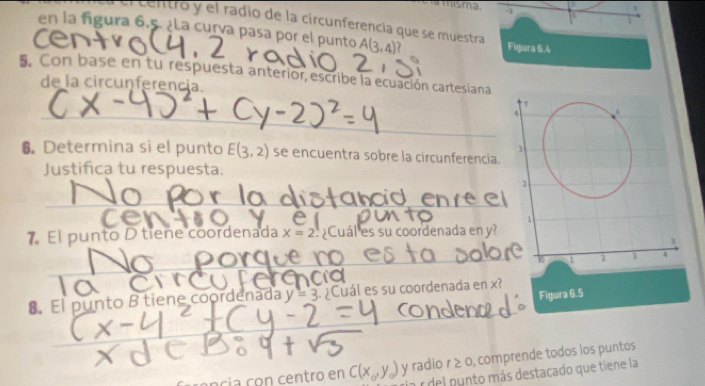 centro y el radio de la circunferencia que se muestra
en la figura 6.5. ¿La curva pasa por el punto A(3, 4)?
centro (4, 2 radio 2, si
5. Con base en tu respuesta anterior, escribe la ecuación cartesiana
de la circunferencia.
(x-4)² + (y-2)² = 4
6. Determina si el punto E(3, 2) se encuentra sobre la circunferencia.
Justifica tu respuesta.
No por la distancia enre el
centro y el punto
7. El punto D tiene coordenada x = 2. ¿Cuál es su coordenada en y?
No porque no esta sobre
la circuferencia
8. El punto B tiene coordenada y = 3. ¿Cuál es su coordenada en x?
(x-4² + (y-2 = 4
x d B: 4 + √3
con centro en C(x₀, y₀) y radio r ≥ 0, comprende todos los puntos
del punto más destacado que tiene la
misma.
Figura 6.4
Y
4
3
2
1
0
1
2
3
4
X
A
Figura 6.5